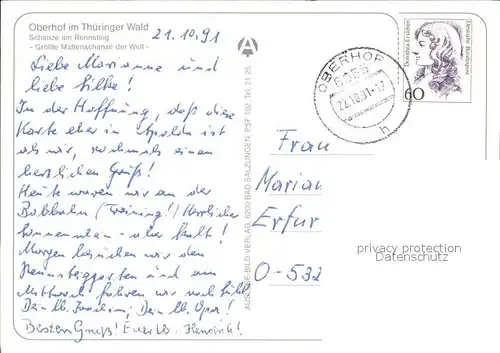 Oberhof im Thüringer Wald
Schanze am Rennsteig
- Größte Mattenschanze der Welt -
21.10.91
Liebe Marianne und
liebe Silke!
In der Hoffnung, daß diese
Karte eher in Apolda ist
als wir, nochmals einen
herzlichen Gruß!
Heute waren wir an der
Bobbahn (Training!) Herrlicher
Sonnenschein - aber kalt!
Morgen besuchen wir den
Rennsteiggarten und am
Mittwoch fahren wir nach
Dein lb. Dein lb. Opa!
Besten Gruß! Euer lb. Heinrich!
AUSLESE-BILD-VERLAG, 6200 BAD SALZUNGEN, PSF 102, Tel. 21 25
OBERHOF
6055
22.10.91-17
h
Dorothea Erxleben
Deutsche Bundespost
60
Frau
Marian
Erfur
O-532
privacy protection
Datenschutz